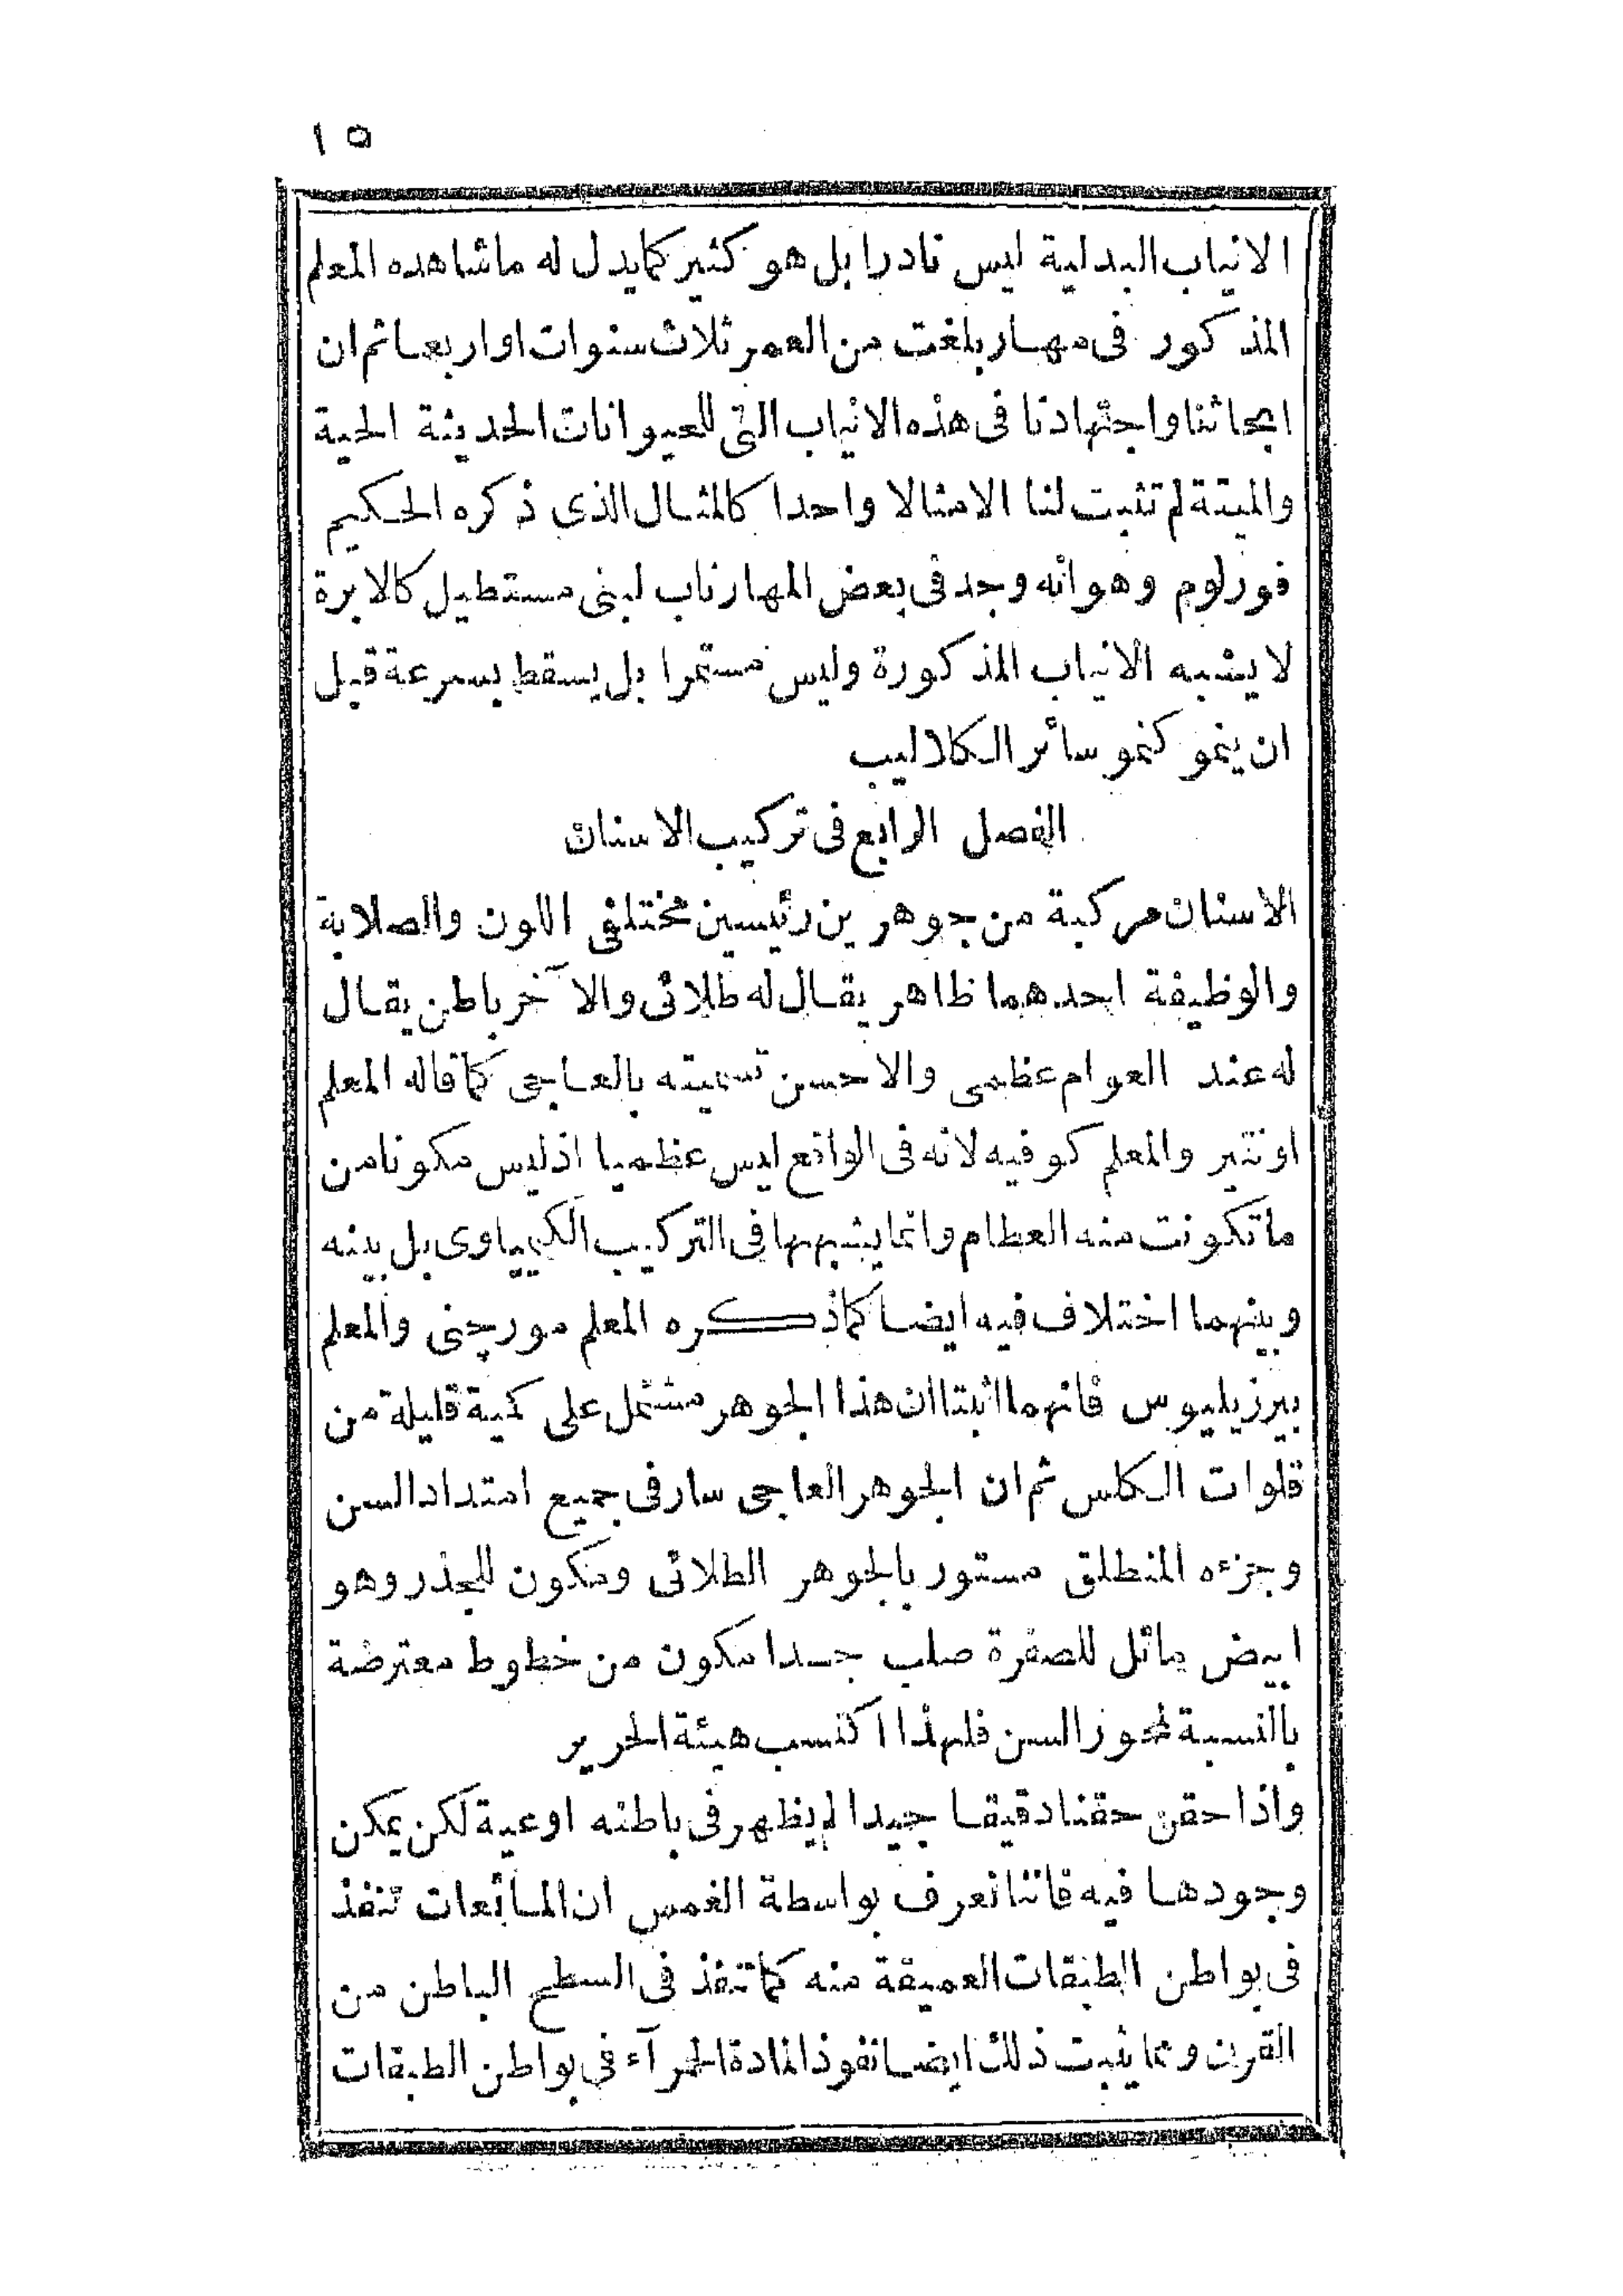 ١٥
الانياب البدلية ليس نادرا بل هو كثير كما يدل له ما شاهده المعلم
المذكور فى مهار بلغت من العمر ثلاث سنوات او اربعا ثم ان
ابحاثنا واجتهادنا فى هذه الانياب التى للحيوانات الحديثة الحية
والميتة لم تثبت لنا الا مثالا واحدا كالمثال الذى ذكره الحكيم
فورلوم وهو انه وجد فى بعض المهار ناب لبنى مستطيل كالابرة
لا يشبه الانياب المذكورة وليس مستمرا بل يسقط بسرعة قبل
ان ينمو كنمو سائر الكلاليب
الفصل الرابع فى تركيب الاسنان
الاسنان مركبة من جوهرين رئيسين مختلفى اللون والصلابة
والوظيفة احدهما ظاهر يقال له طلائى والآخر باطن يقال
له عند العوام عظمى والاحسن تسميته بالعاجى كما قاله المعلم
اونتير والمعلم كوفيه لانه فى الواقع ليس عظميا اذ ليس مكونا من
ما تكونت منه العظام وانما يشبهها فى التركيب الكيمياوى بل بينه
وبينهما اختلاف فيه ايضا كما ذكره المعلم مورچنى والمعلم
بيرزيليوس فانهما اثبتا ان هذا الجوهر مشتمل على كمية قليلة من
قلوات الكلس ثم ان الجوهر العاجى سار فى جميع امتداد السن
وجزءه المنطلق مستور بالجوهر الطلائى ومكون للجذر وهو
ابيض مائل للصفرة صلب جدا مكون من خطوط معترضة
بالنسبة لمحور السن فلهذا اكتسب هيئة الحرير
واذا حقن حقنا دقيقا جيدا لم يظهر فى باطنه اوعية لكن يمكن
وجودها فيه فاننا نعرف بواسطة الغمس ان المائعات تنفذ
فى بواطن الطبقات العميقة منه كما تنفذ فى السطح الباطن من
القرن ومما يثبت ذلك ايضا نفوذ المادة الحمرآء فى بواطن الطبقات